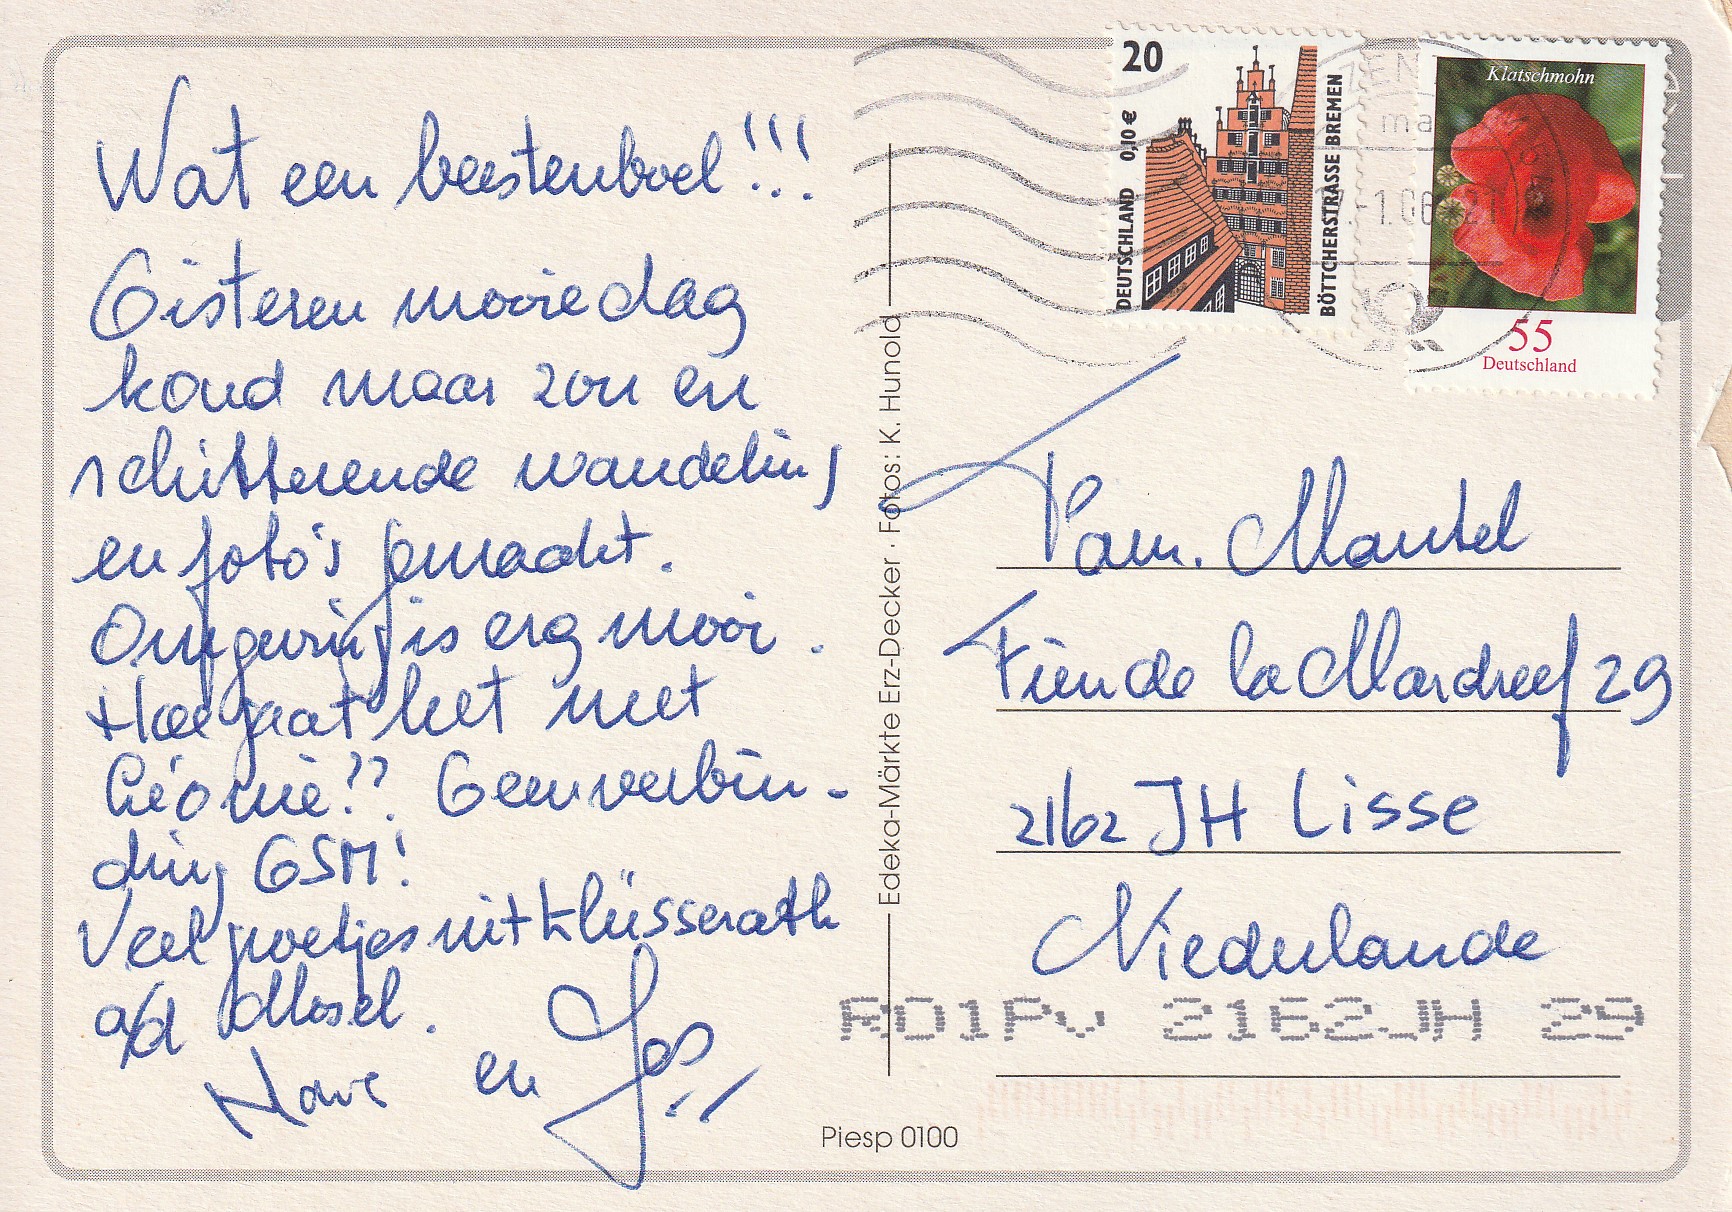 Wat een beestenboel!!!
Gisteren mooie dag
koud maar zon en
schitterende wandeling
en foto's gemaakt.
Omgeving is erg mooi.
Hoe gaat het met
Léonie?? Geen verbin-
ding GSM!
Veel poetjes uit Klüsserath
a/d Mosel.
en Jos
Edeka-Märkte Erz-Decker · Fotos: K. Hunold
Piesp 0100
20
0,10 €
DEUTSCHLAND
BÖTTCHERSTRASSE BREMEN
Klatschmohn
55
Deutschland
Fam. Mantel
Fien de la Mardreef 29
2162 JH Lisse
Niederlande
2162JH 29